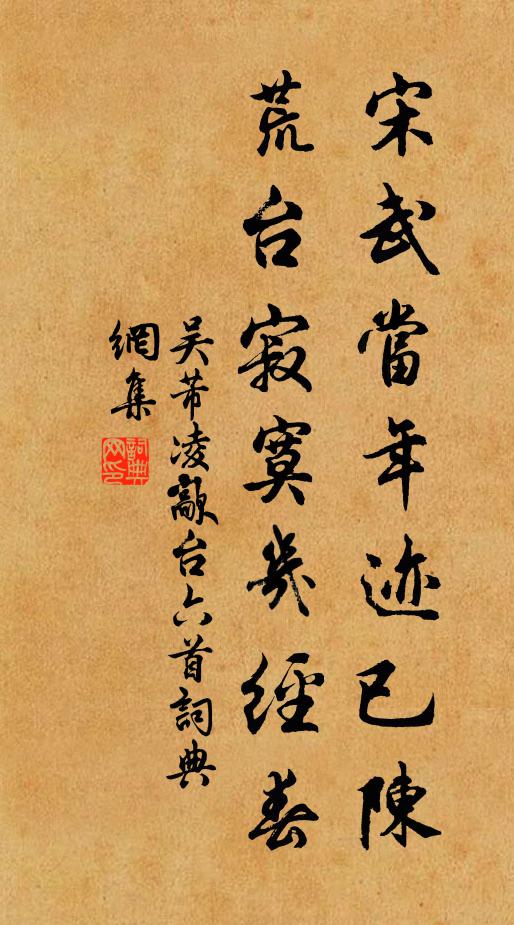 宋武當年迹已陳
荒台寂寞幾經春
吴芾凌歊台六首詞典
網集
詞典網印